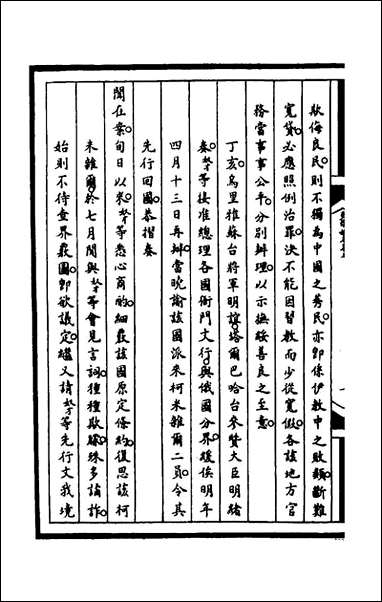 欺侮良民。則不獨為中國之莠民。亦即係伊教中之敗類。斷難
寬貸。必應照例治罪。決不能因習教而少從寬假。各該地方官
務當事事公平。分別辦理。以示撫綏善良之至意。
丁亥。烏里雅蘇台將軍明誼。塔爾巴哈台參贊大臣明緒
奏。奴才等接准總理各國衙門文行。與俄國分界。緩俟明年
四月十三日再辦。當曉諭該國派來柯米薩爾二員。令其
先行回國。恭摺奏
聞在案。旬日以來。奴才等悉心商酌。細覈該國原定條約。復思該柯
米薩爾。於七月間與奴才等會見言詞。種種欺矇。殊多論詐。
始則不待查界覈圖。即欲議定。繼又請奴才等先行文我境